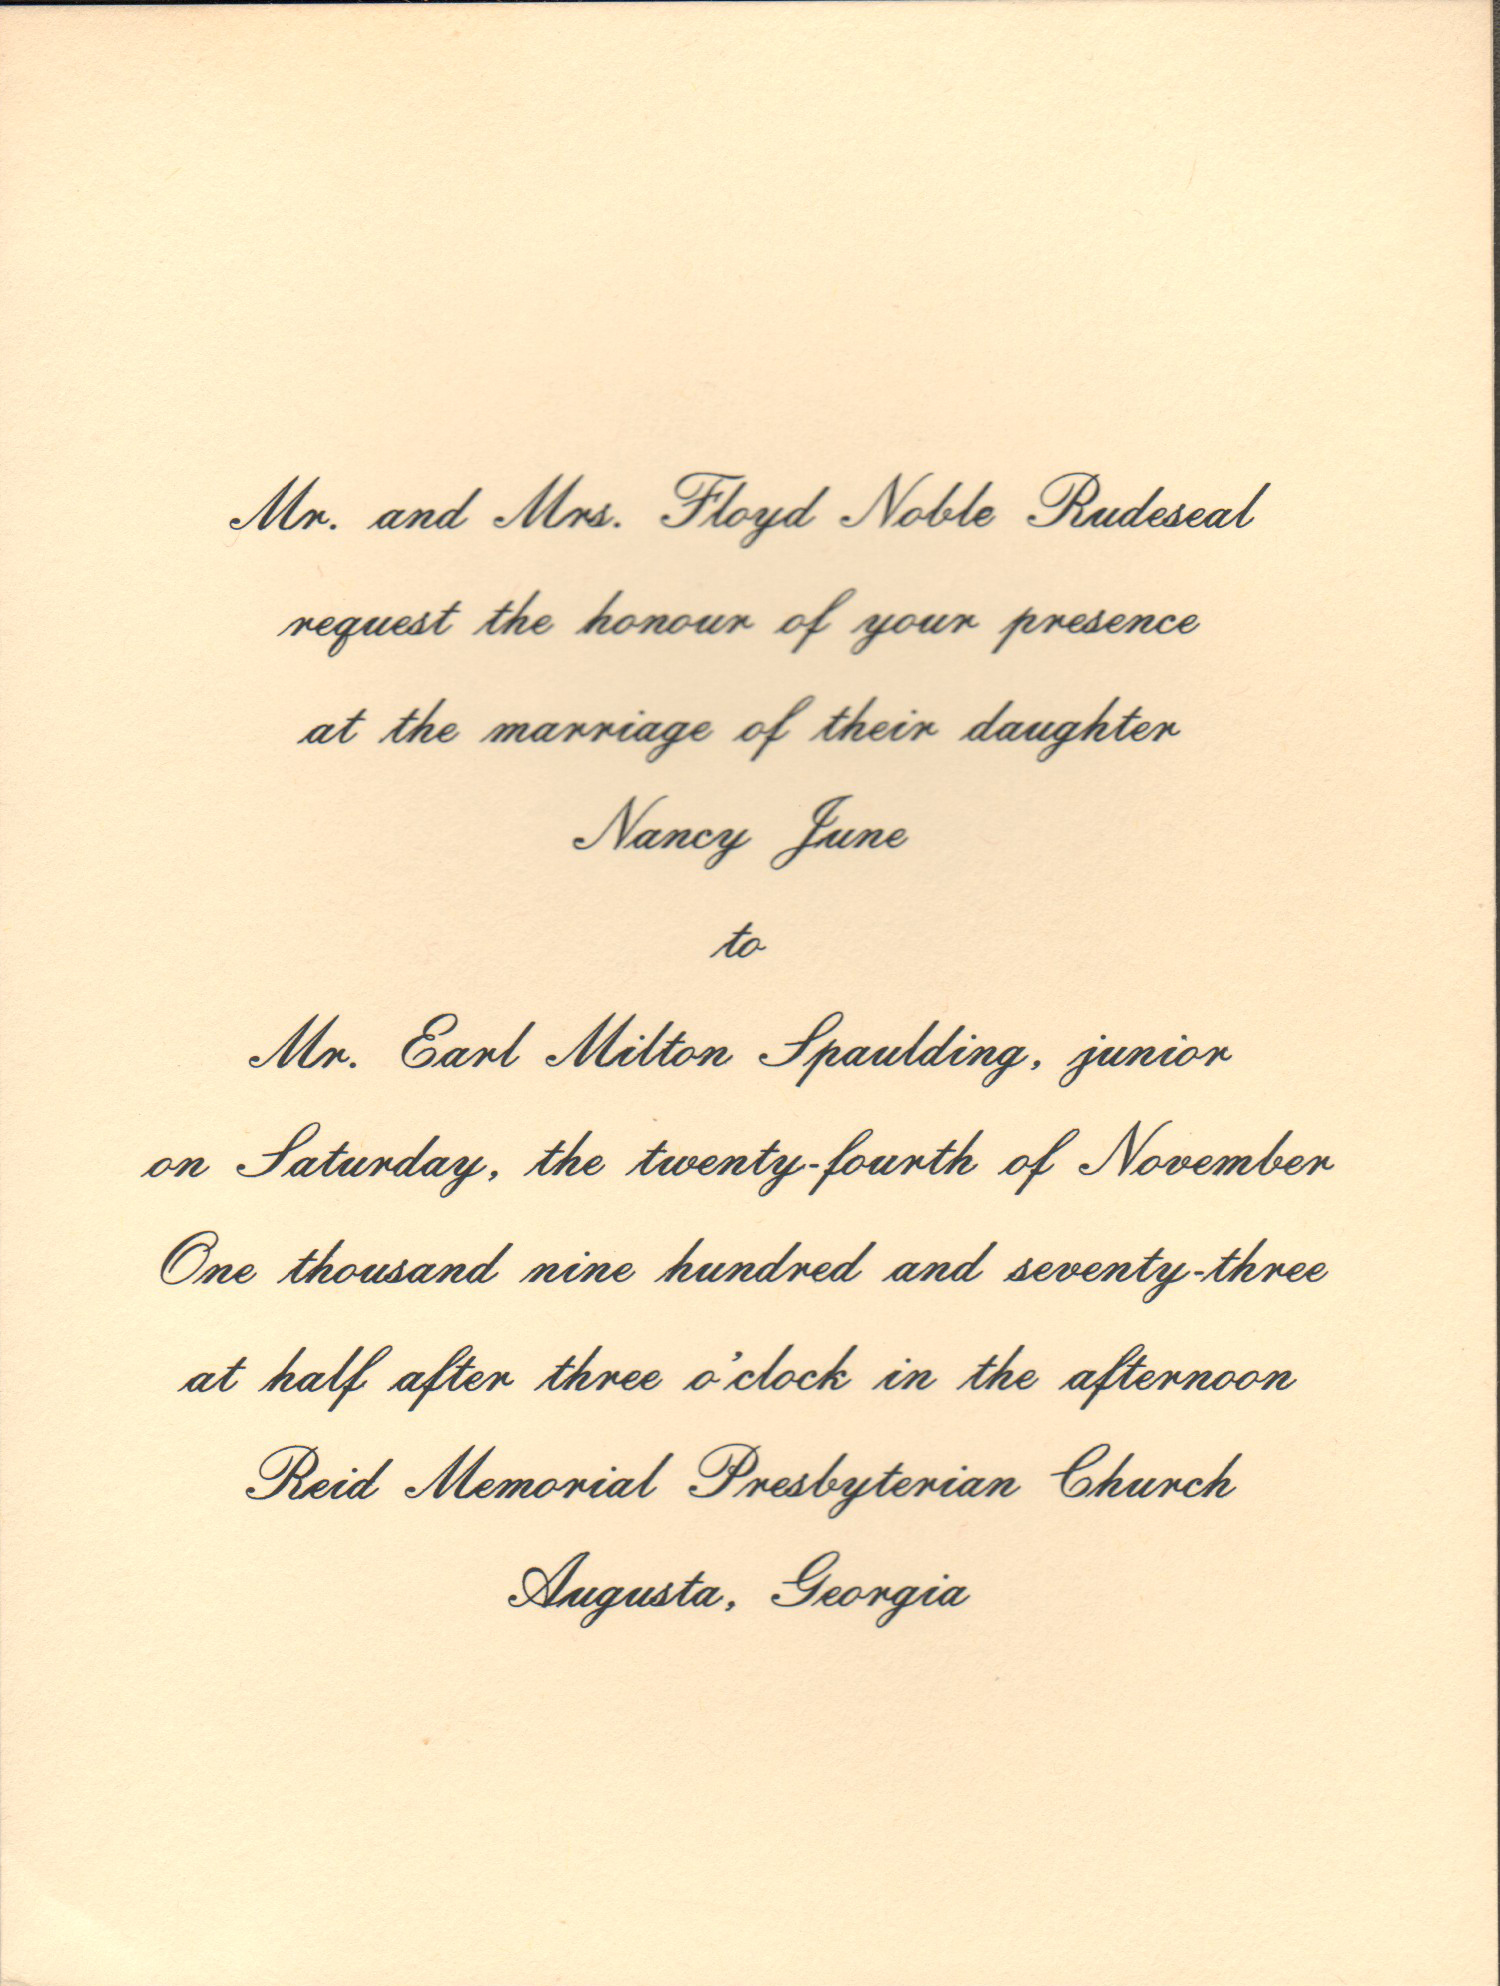 Mr. and Mrs. Floyd Noble Rudeseal
request the honour of your presence
at the marriage of their daughter
Nancy June
to
Mr. Earl Milton Spaulding, junior
on Saturday, the twenty-fourth of November
One thousand nine hundred and seventy-three
at half after three o'clock in the afternoon
Reid Memorial Presbyterian Church
Augusta, Georgia